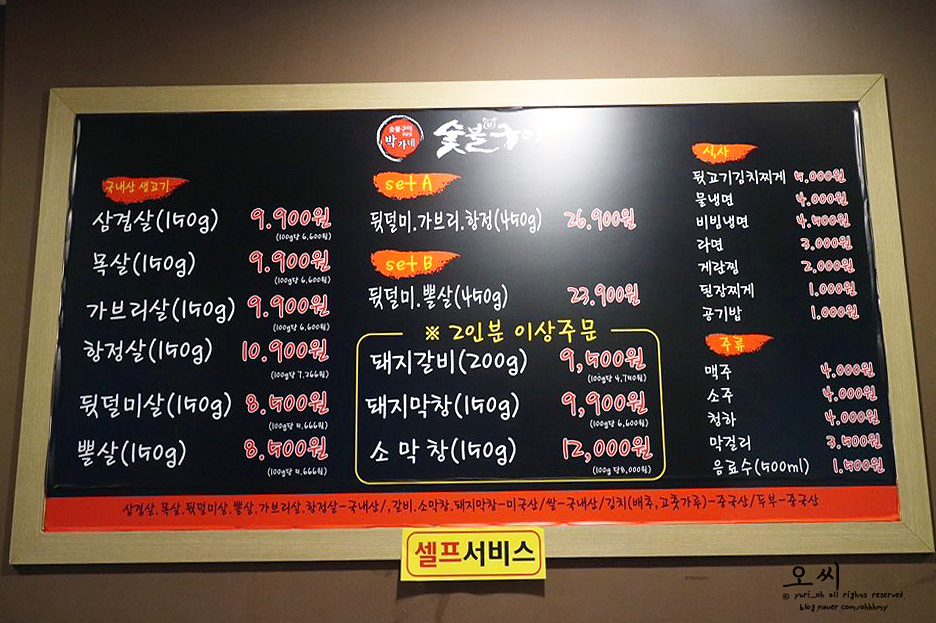 숯불구이
박가네
숯불구이
국내산 생고기
삼겹살(150g) 9.900원
(100g당 6,600원)
목살(150g) 9.900원
(100g당 6,600원)
가브리살(150g) 9.900원
(100g당 6,600원)
항정살(150g) 10.900원
(100g당 7,266원)
뒷덜미살(150g) 8.500원
(100g당 5,666원)
뽈살(150g) 8.500원
(100g당 5,666원)
set A
뒷덜미.가브리.항정(450g) 26.900원
set B
뒷덜미.뽈살(450g) 23.900원
※ 2인분 이상주문
돼지갈비(200g) 9,500원
(100g당 4,750원)
돼지막창(150g) 9,900원
(100g당 6,600원)
소 막창(150g) 12,000원
(100g당8,000원)
식사
뒷고기김치찌게 5.000원
물냉면 4.000원
비빔냉면 4.500원
라면 3.000원
계란찜 2.000원
된장찌게 1.000원
공기밥 1.000원
주류
맥주 4.000원
소주 4.000원
청하 4.000원
막걸리 3.500원
음료수(500ml) 1.500원
삼겹살.목살.뒷덜미살.뽈살.가브리살.항정살-국내산/,갈비.소막창.돼지막창-미국산/쌀-국내산/김치(배추,고춧가루)-중국산/두부-중국산
셀프서비스
오씨
© yuri_oh all rights reserved.
blog.naver.com/ohhhmy